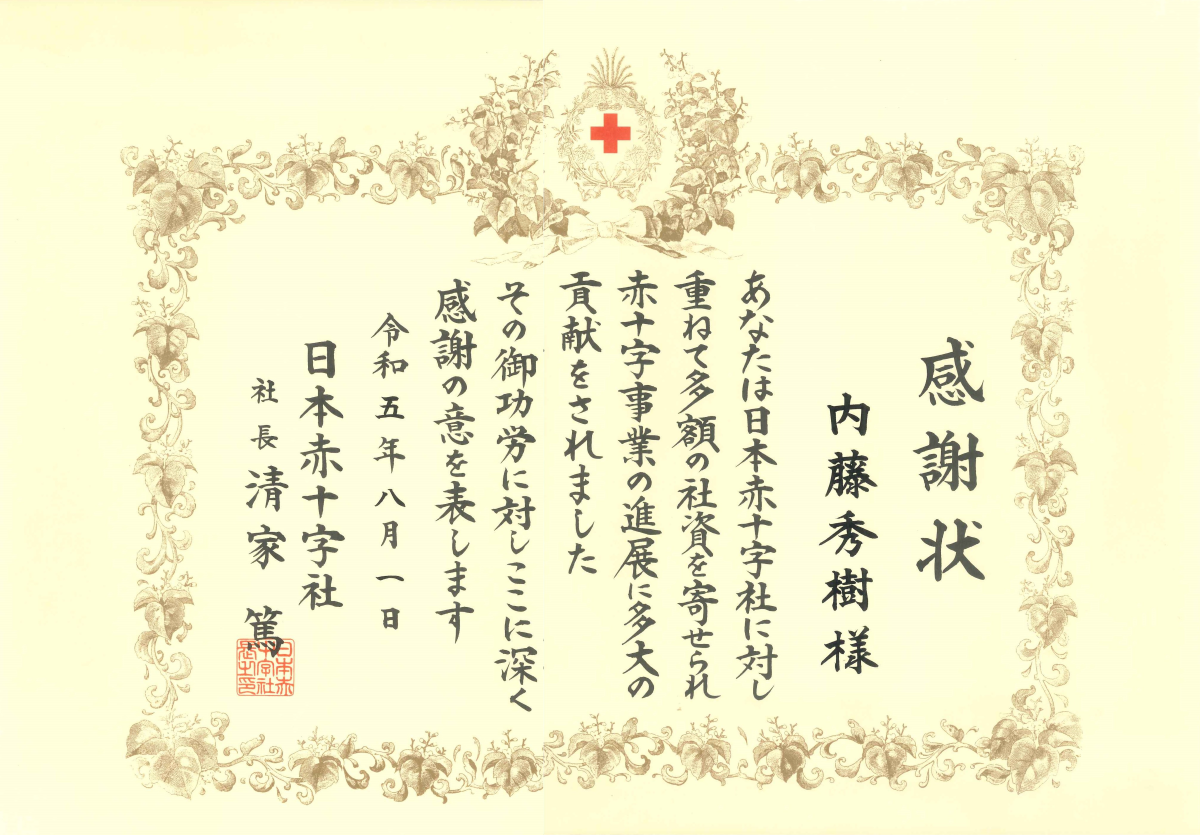 感謝状
内藤秀樹様
あなたは日本赤十字社に対し
重ねて多額の社資を寄せられ
赤十字事業の進展に多大の
貢献をされました
その御功労に対しここに深く
感謝の意を表します
令和五年八月一日
日本赤十字社
社長 清家 篤
日本赤
十字社
長之印